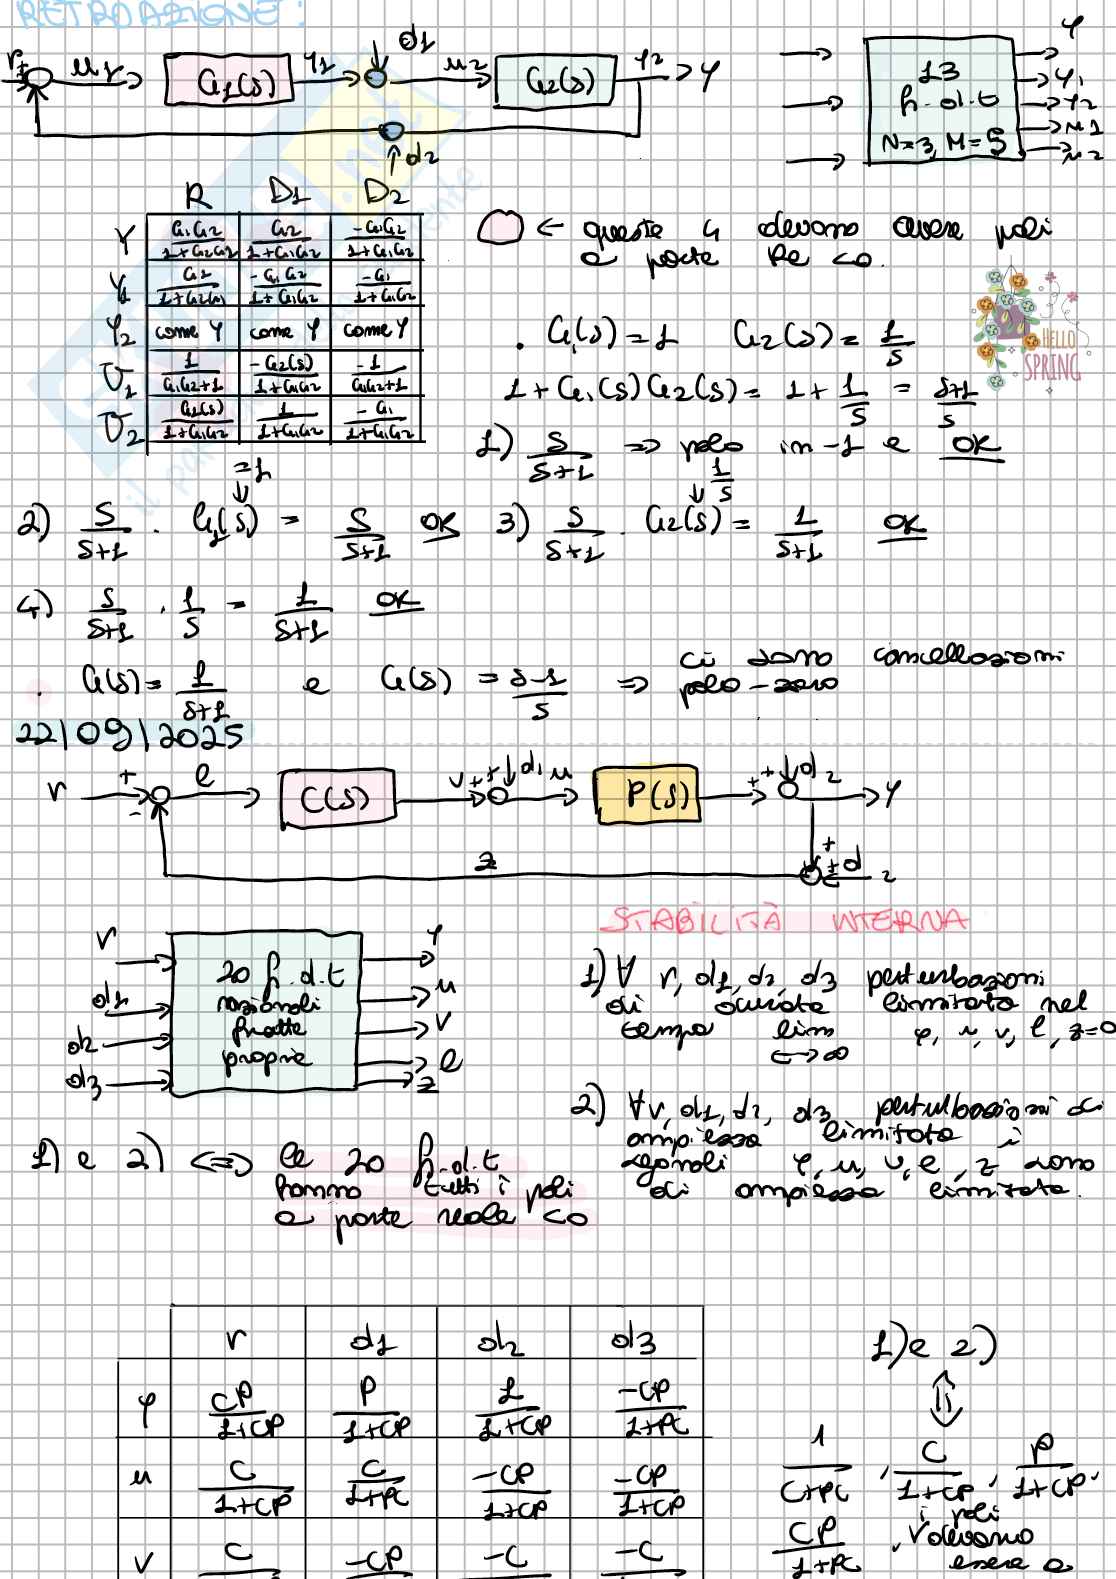 RETROAZIONE:
r + u1 G1(s) y1 d1 u2 G2(s) y2 y
d2
13
f.d.t
N=3, M=5
y
y1
y2
u1
u2
R D1 D2
Y G1G2/1+G2G1 G2/1+G1G2 -G1G2/1+G1G2
Y1 G1/1+G2G1 -G1G2/1+G1G2 -G1/1+G1G2
Y2 come Y come Y come Y
U1 1/G1G2+1 -G2(s)/1+G1G2 -1/G1G2+1
U2 G1(s)/1+G1G2 1/1+G1G2 -G1/1+G1G2
← queste 4 devono avere poli
a parte Re <0.
. G1(s)=1 G2(s)= 1/s
1+G1(s)G2(s)= 1+ 1/s = s+1/s
1) s/s+1 => polo in -1 e OK
=1 ↓ ↓ 1/s
2) s/s+1 . G1(s) = s/s+1 OK 3) s/s+1 . G2(s) = 1/s+1 OK
4) s/s+1 . 1/s = 1/s+1 OK
. G(s)= 1/s+1 e G(s) = s-1/s => ci sono cancellazioni
polo-zero
22|09|2025
r + - e C(s) v + + d1 u P(s) + + d2 y
z + + d2
STABILITÀ INTERNA
r
d1
d2
d3
20 f.d.t
razionali
fratte
proprie
y
u
v
e
z
1) ∀ r, d1, d2, d3 perturbazioni
di durata limitata nel
tempo lim t→∞ y, u, v, e, z=0
2) ∀r, d1, d2, d3 perturbazioni di
ampiezza limitata i
segnali y, u, v, e, z sono
di ampiezza limitata.
1) e 2) <=> le 20 f.d.t
hanno tutti i poli
a parte reale <0
r d1 d2 d3
y CP/1+CP P/1+CP 1/1+CP -CP/1+PC
u C/1+CP C/1+PC -CP/1+CP -CP/1+CP
v C -CP -C -C
1) e 2)
⇕
1/C+PC , C/1+CP , P/1+CP ,
CP/1+PC , i poli
devono
essere a
HELLO
SPRING